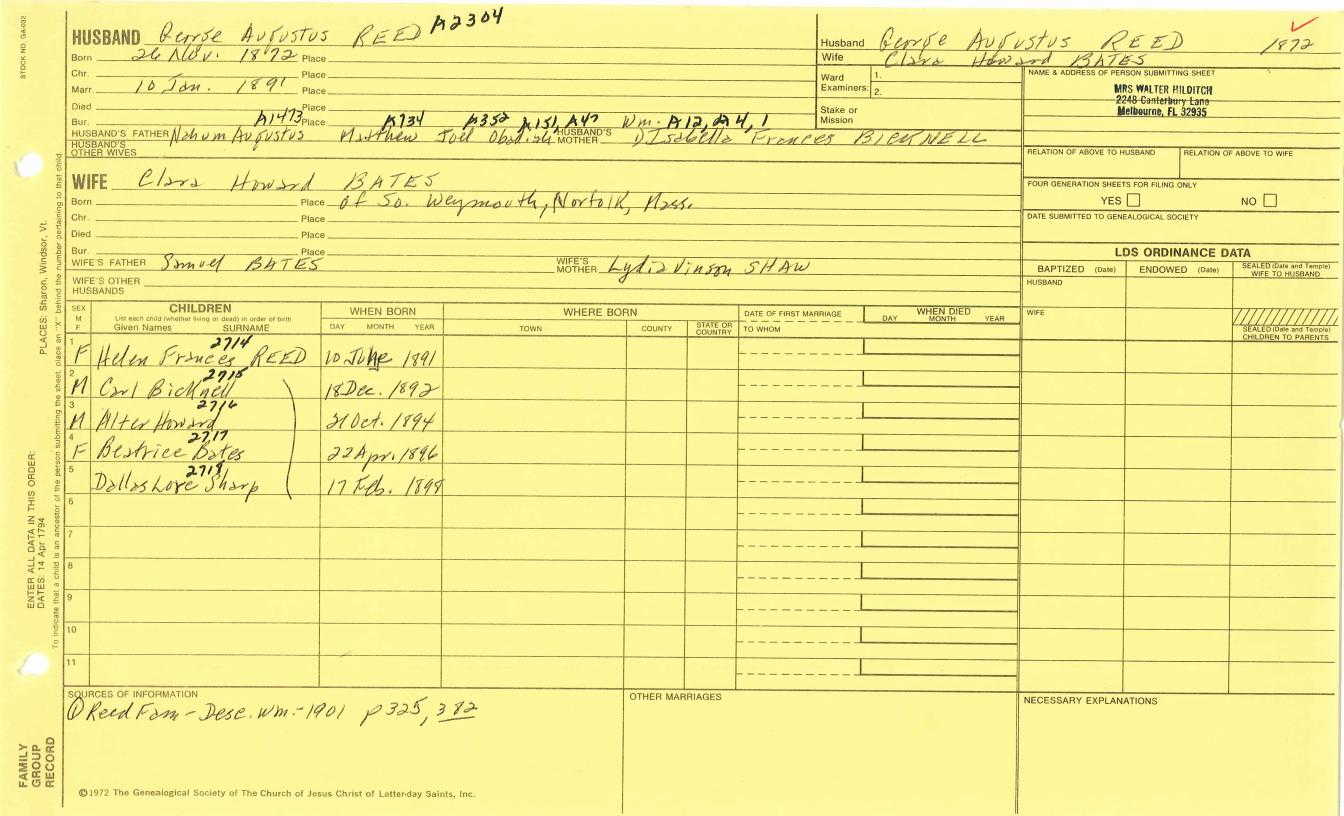 STOCK NO. GA-032
HUSBAND George Augustus REED A2304
Born 26 Nov. 1872 Place
Chr. Place
Marr. 10 Jan. 1891 Place
Died Place
Bur. Place
A1473 A734 A352 A151, A47 Wm. A12, A4, 1
HUSBAND'S FATHER Nahum Augustus Matthew Joel Obadiah HUSBAND'S MOTHER Isabella Frances BICKNELL
HUSBAND'S OTHER WIVES
Husband George Augustus REED 1872
Wife Clara Howard BATES
Ward Examiners: 1.
2.
Stake or Mission
NAME & ADDRESS OF PERSON SUBMITTING SHEET
MRS WALTER HILDITCH
2248 Canterbury Lane
Melbourne, FL 32935
RELATION OF ABOVE TO HUSBAND RELATION OF ABOVE TO WIFE
FOUR GENERATION SHEETS FOR FILING ONLY
YES NO
DATE SUBMITTED TO GENEALOGICAL SOCIETY
WIFE Clara Howard BATES
Born Place of So. Weymouth, Norfolk, Mass.
Chr. Place
Died Place
Bur. Place
WIFE'S FATHER Samuel BATES WIFE'S MOTHER Lydia Vinson SHAW
WIFE'S OTHER HUSBANDS
LDS ORDINANCE DATA
BAPTIZED (Date) ENDOWED (Date) SEALED (Date and Temple) WIFE TO HUSBAND
HUSBAND
WIFE
SEALED (Date and Temple) CHILDREN TO PARENTS
SEX M F
CHILDREN
List each child (whether living or dead) in order of birth
Given Names SURNAME
WHEN BORN
DAY MONTH YEAR
WHERE BORN
TOWN COUNTY STATE OR COUNTRY
DATE OF FIRST MARRIAGE
TO WHOM
WHEN DIED
DAY MONTH YEAR
2714
1 F Helen Frances REED 10 June 1891
2715
2 M Carl Bicknell 18 Dec. 1892
2716
3 M Alter Howard 21 Oct. 1894
2717
4 F Beatrice Bates 22 Apr. 1896
2718
5 Dallas Lore Sharp 17 Feb. 1898
6
7
8
9
10
11
SOURCES OF INFORMATION
① Reed Fam - Desc. Wm. - 1901 p 325, 382
OTHER MARRIAGES
NECESSARY EXPLANATIONS
©1972 The Genealogical Society of The Church of Jesus Christ of Latter-day Saints, Inc.
FAMILY GROUP RECORD
ENTER ALL DATA IN THIS ORDER:
DATES: 14 Apr 1794
PLACES: Sharon, Windsor, Vt.
To indicate that a child is an ancestor of the person submitting the sheet, place an "X" behind the number pertaining to that child